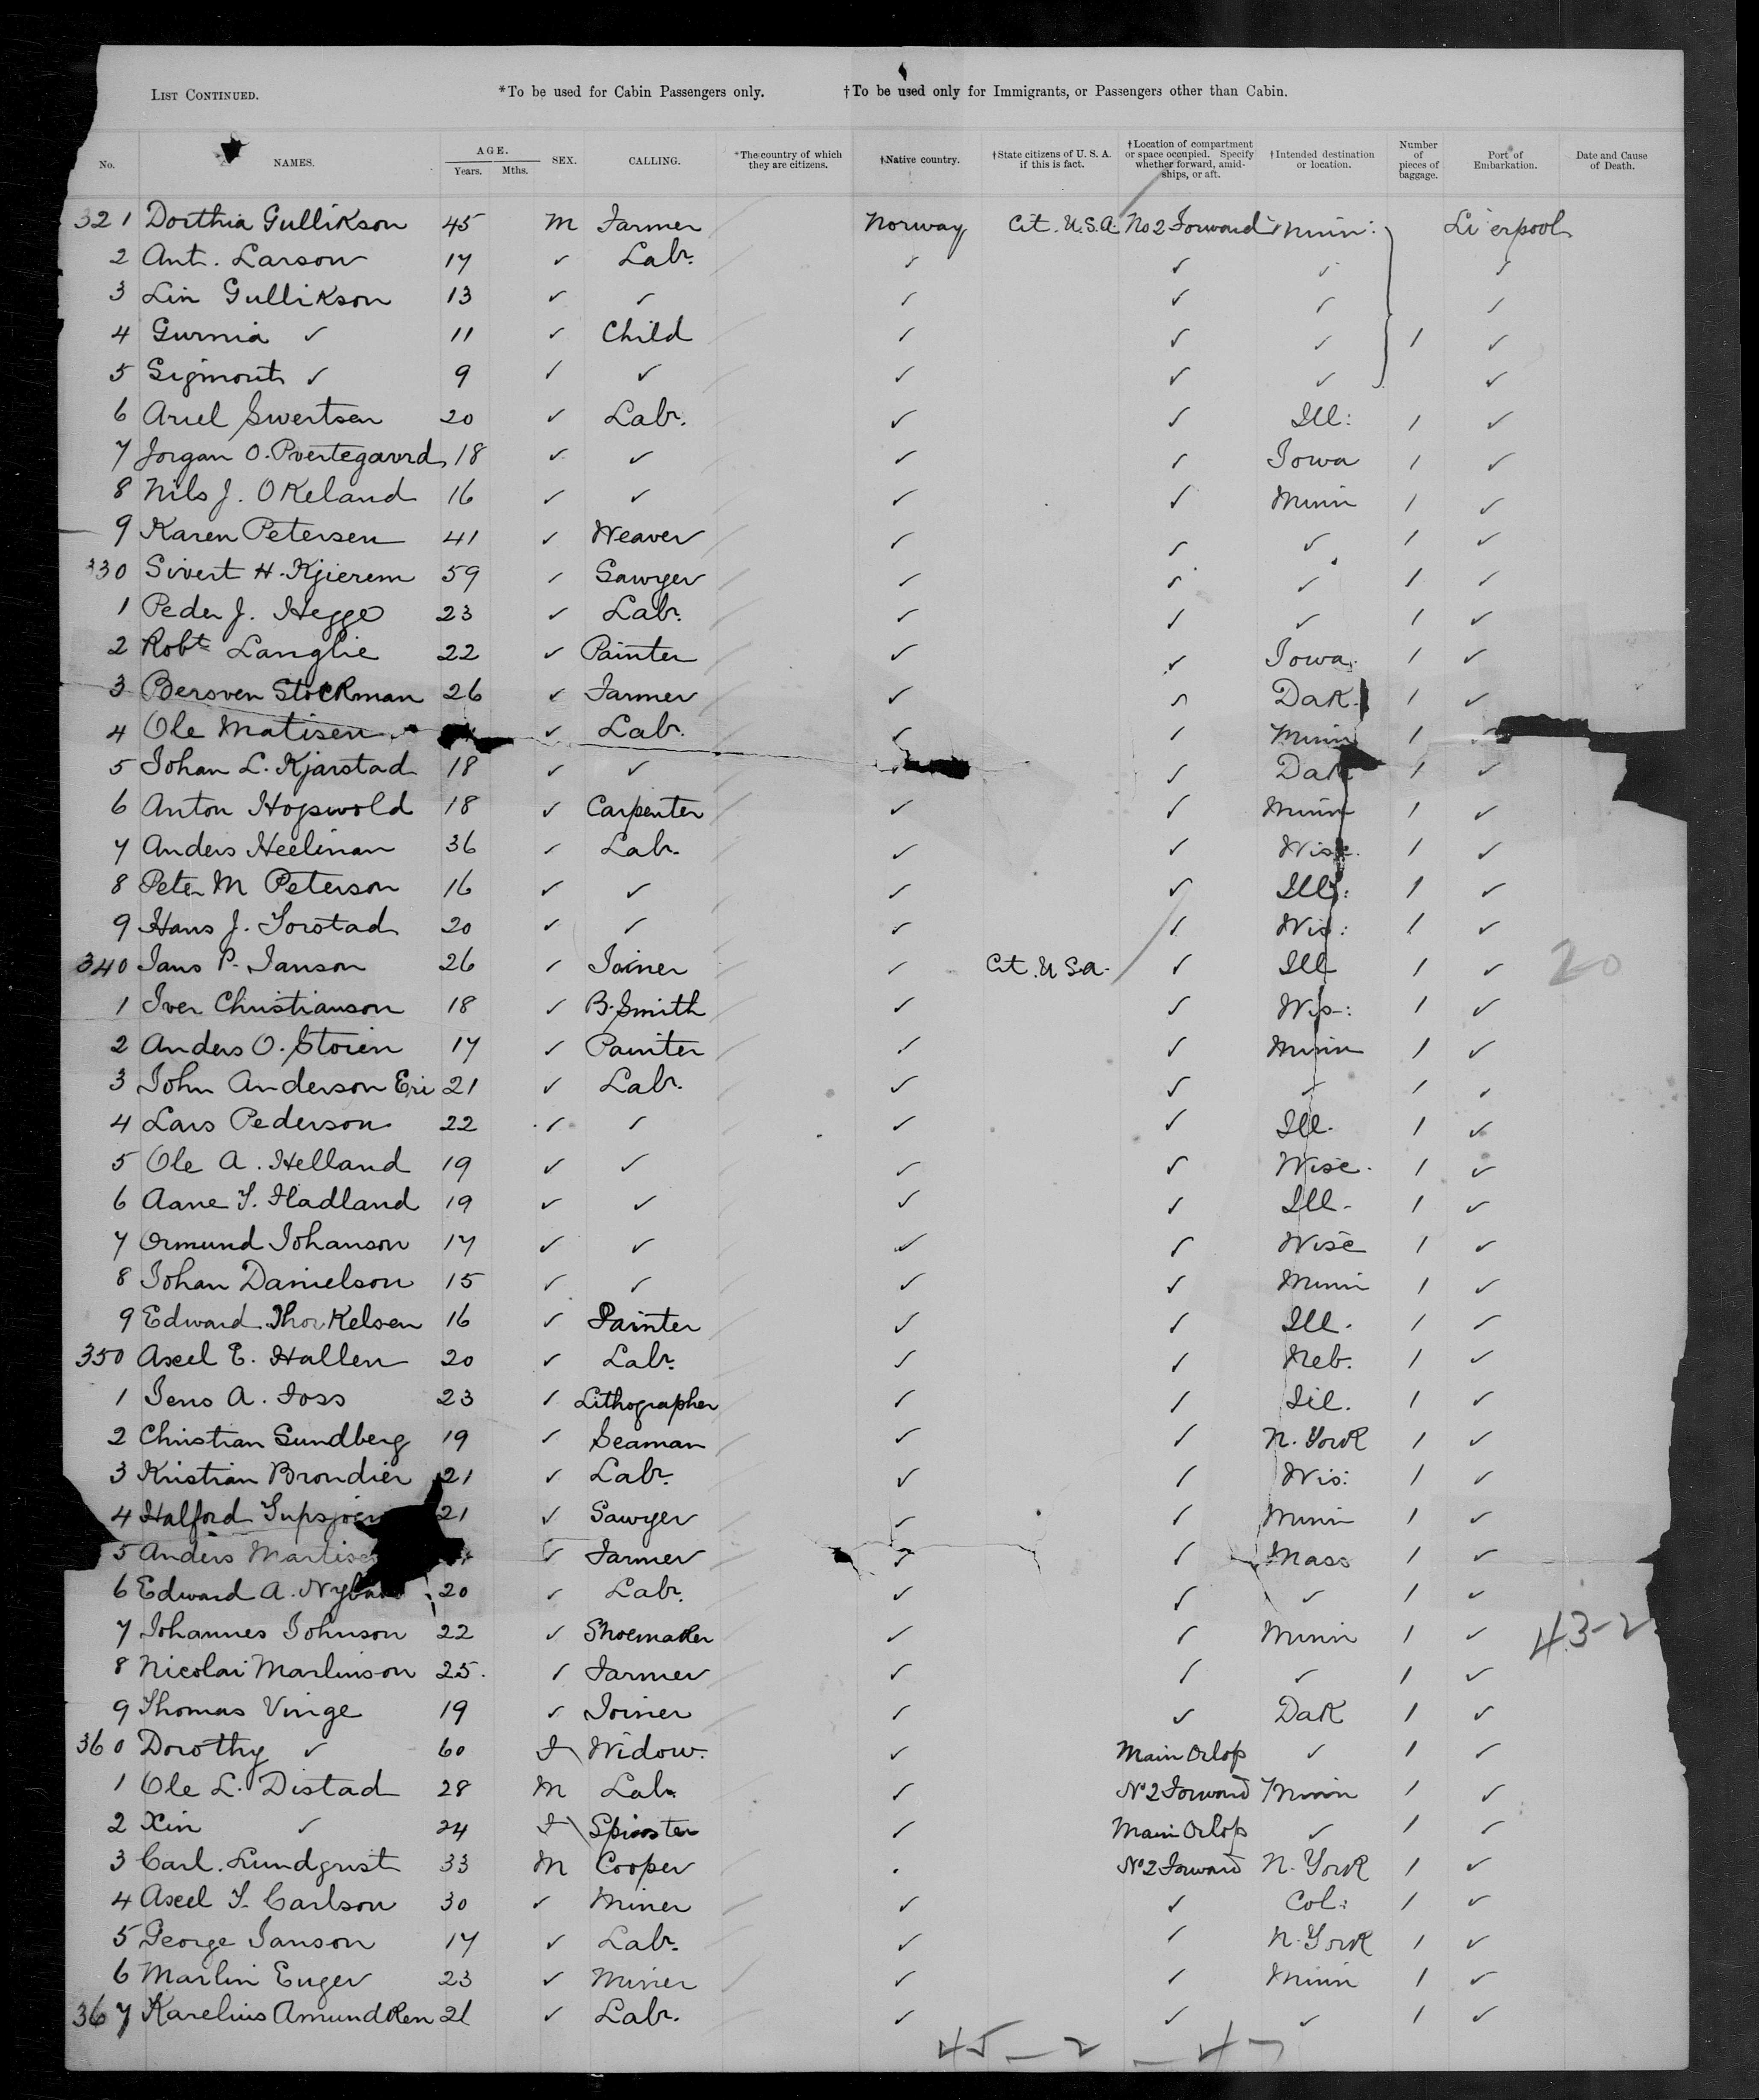 LIST CONTINUED. *To be used for Cabin Passengers only. †To be used only for Immigrants, or Passengers other than Cabin.
No. NAMES. AGE. Years. Mths. SEX. CALLING. *The country of which they are citizens. †Native country. †State citizens of U. S. A. if this is fact. †Location of compartment or space occupied. Specify whether forward, amidships, or aft. †Intended destination or location. Number of pieces of baggage. Port of Embarkation. Date and Cause of Death.
321 Dorthia Gullikson 45 M Farmer Norway Cit. U.S.A. No 2 Forward Minn: Li erpool
2 Ant. Larson 17 ✓ Labr. ✓ ✓ ✓ ✓
3 Lin Gullikson 13 ✓ ✓ ✓ ✓ ✓ ✓
4 Gurnia ✓ 11 ✓ Child ✓ ✓ ✓ 1 ✓
5 Sigmont ✓ 9 ✓ ✓ ✓ ✓ ✓ ✓
6 Ariel Swertsen 20 ✓ Labr. ✓ ✓ Ill: 1 ✓
7 Jorgan O. 18 ✓ ✓ ✓ ✓ Iowa 1 ✓
8 Nils J. OKeland 16 ✓ ✓ ✓ ✓ Minn 1 ✓
9 Karen Petersen 41 ✓ Weaver ✓ ✓ ✓ 1 ✓
330 Sivert H. Kjierem 59 ✓ Sawyer ✓ ✓ ✓ 1 ✓
1 Peder J. Hegge 23 ✓ Labr. ✓ ✓ ✓ 1 ✓
2 Robt Langlie 22 ✓ Painter ✓ ✓ Iowa. 1 ✓
3 Bersven Stockman 26 ✓ Farmer ✓ ✓ Dak. 1 ✓
4 Ole Matisen ✓ Labr. ✓ ✓ Minn 1 ✓
5 Johan L. Kjarstad 18 ✓ ✓ ✓ Dak 1 ✓
6 Anton Hopwold 18 ✓ Carpenter ✓ ✓ Minn 1 ✓
7 Anders Heelinan 36 ✓ Labr. ✓ ✓ Wisc. 1 ✓
8 Peter M Peterson 16 ✓ ✓ ✓ ✓ Ill: 1 ✓
9 Hans J. Torstad 20 ✓ ✓ ✓ ✓ Wis: 1 ✓
340 Jans P. Janson 26 ✓ Joiner ✓ Cit. U Sa. ✓ Ill 1 ✓ 20
1 Iver Christianson 18 ✓ B. Smith ✓ ✓ Wis: 1 ✓
2 Anders O. Stoien 17 ✓ Painter ✓ ✓ Minn 1 ✓
3 John Anderson Eri 21 ✓ Labr. ✓ ✓ ✓ 1 ✓
4 Lars Pederson 22 ✓ ✓ ✓ ✓ Ill. 1 ✓
5 Ole A. Helland 19 ✓ ✓ ✓ ✓ Wisc. 1 ✓
6 Aane T. Hadland 19 ✓ ✓ ✓ ✓ Ill. 1 ✓
7 Ormund Johanson 17 ✓ ✓ ✓ ✓ Wisc 1 ✓
8 Johan Danielson 15 ✓ ✓ ✓ ✓ Minn 1 ✓
9 Edward Thorkelsen 16 ✓ Painter ✓ ✓ Ill. 1 ✓
350 Axel E. Hallen 20 ✓ Labr. ✓ ✓ Neb. 1 ✓
1 Jens A. Foss 23 ✓ Lithographer ✓ ✓ Ill. 1 ✓
2 Christian Sundberg 19 ✓ Seaman ✓ ✓ N. York 1 ✓
3 Kristian Brondier 21 ✓ Labr. ✓ ✓ Wis: 1 ✓
4 Halford 21 ✓ Sawyer ✓ ✓ Minn 1 ✓
5 Anders ✓ Farmer ✓ ✓ Mass 1 ✓
6 Edward A. 20 ✓ Labr. ✓ ✓ ✓ 1 ✓
7 Johannes Johnson 22 ✓ Shoemaker ✓ ✓ Minn 1 ✓ 43-2
8 Nicolai Marlinson 25. ✓ Farmer ✓ ✓ ✓ 1 ✓
9 Thomas Vinge 19 ✓ Joiner ✓ ✓ Dak 1 ✓
360 Dorothy ✓ 60 F Widow. ✓ Main Orlop ✓ 1 ✓
1 Ole L. Distad 28 M Labr. ✓ No 2 Forward Minn 1 ✓
2 Xin ✓ 24 F Spinster ✓ Main Orlop ✓ 1 ✓
3 Carl. Lundgrist 33 M Cooper No 2 Forward N. York 1 ✓
4 Axel T. Carlson 30 ✓ Miner ✓ ✓ Col: 1 ✓
5 George Janson 17 ✓ Labr. ✓ ✓ N. York 1 ✓
6 Marlin Enger 23 ✓ Miner ✓ ✓ Minn 1 ✓
367 Karelius Amundken 21 ✓ Labr. ✓ ✓ ✓ 1 ✓
45 - 2 - 47